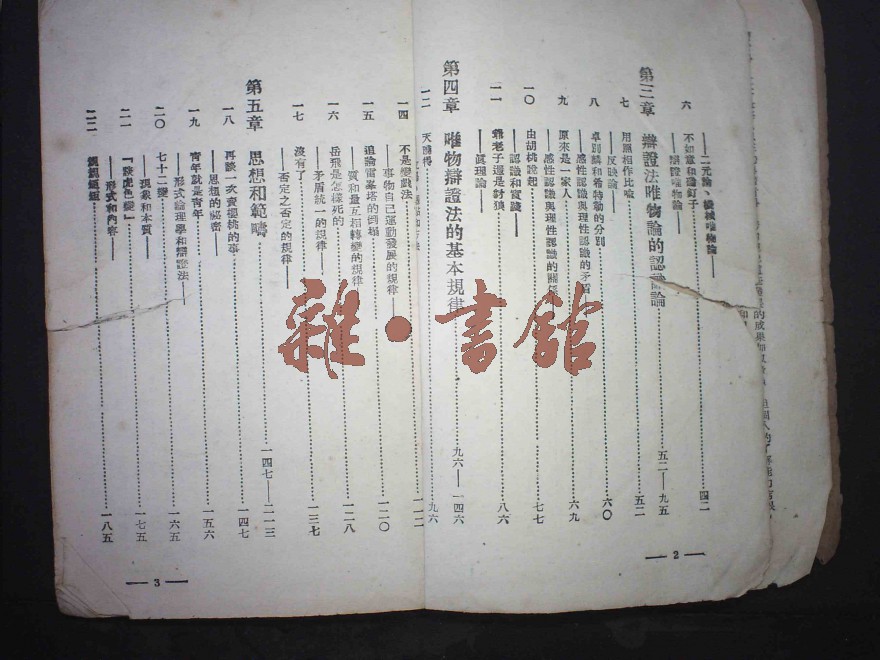 ——二元論、機械唯物論——
六 不如意和碰釘子……四二
——辯證唯物論——
第三章 辯證法唯物論的認識論……五二—九五
七 用照相作比喻……五二
——反映論——
八 卓別麟和希特勒的分別……六〇
——感性認識與理性認識的矛盾
九 原來是一家人……六九
——感性認識與理性認識的關係
一〇 由胡桃說起……七七
——認識和實踐——
一一 ……八六
——眞理論——
第四章 唯物辯證法的基本規律……九六—一四六
一二 天……九六
一四 不是變戲法……一一二
——事物自己運動發展的規律——
一五 追論雷峯塔的倒塌……一二〇
——質和量互相轉變的規律——
一六 岳飛是怎樣死的……一二八
——矛盾統一的規律——
一七 沒有了……一三七
——否定之否定的規律——
第五章 思想和範疇……一四七—二一三
一八 再談一次賣櫻桃的事……一四七
——思想的祕密——
一九 青年就是青年……一五六
——形式論理學和辯證法——
二〇 七十二變……一六五
——現象和本質——
二一 「談虎色變」……一七五
——形式和內容——
二二 ……一八五
— 2 —
— 3 —
雜·書館